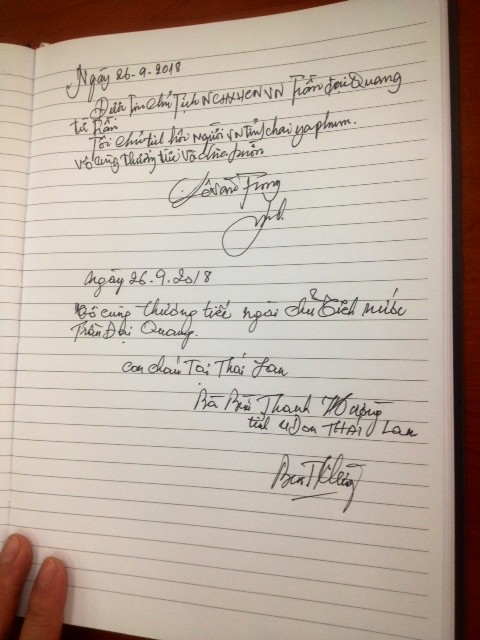 Ngày 26-9-2018
Được tin chủ Tịch NCHXHCNVN Trần đại Quang
từ Trần
Tôi chủ tịch hội Người VN tỉnh chaiyaphum.
vô cùng thương tiếc và chia buồn
ngày 26.9.2018
Vô cùng thương tiếc ngài chủ tịch nước
Trần Đại Quang.
con cháu Tại Thái Lan
Bà Bùi Thanh
tỉnh uDon THAI Lan